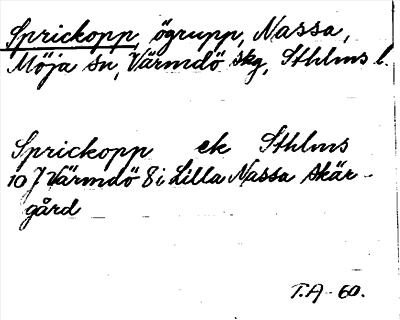 Sprickopp, ögrupp, Nassa,
Möja sn, Värmdö skg, Sthlms l.
Sprickopp ek Sthlms
10 J Värmdö 8 i Lilla Nassa skär-
gård
T.A. 60.